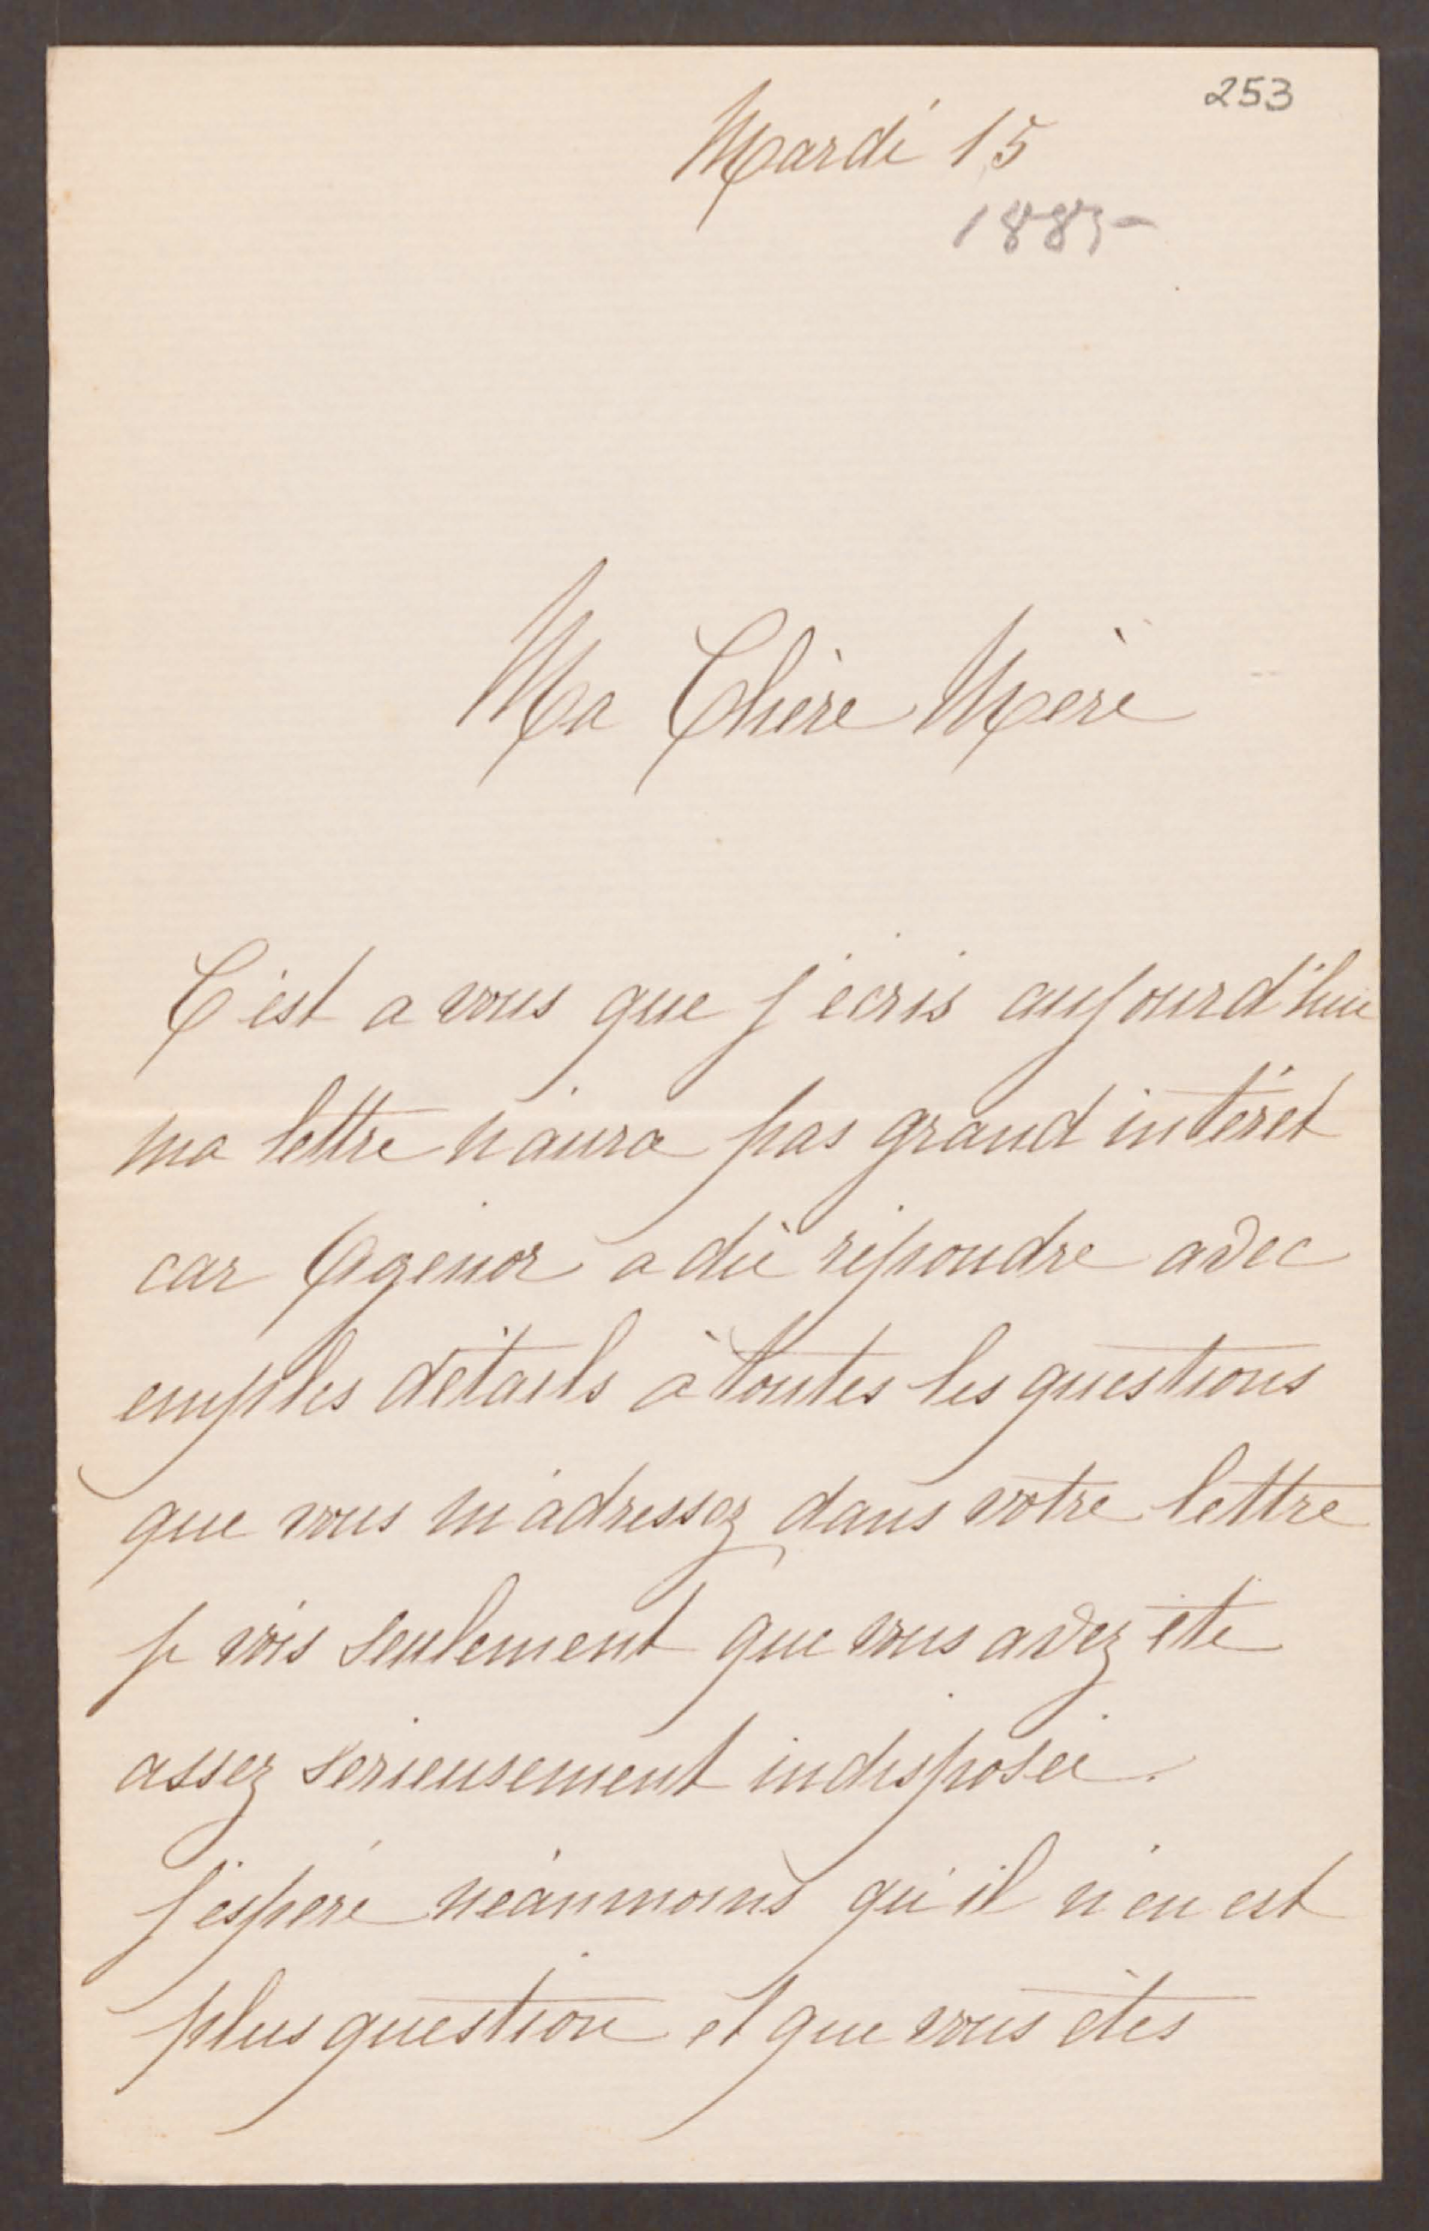 253
Mardi 15
1885
Ma Chère Mère
C'est a vous que j'ecris aujourd'hui
ma lettre n'aura pas grand intéret
car Agenor a dû répondre avec
emples détails à toutes les questions
que vous m'adressez dans votre lettre
je vois seulement que vous avez éte
assez serieusement indisposée.
J'espere néanmoins qu'il n'en est
plus question et que vous étes